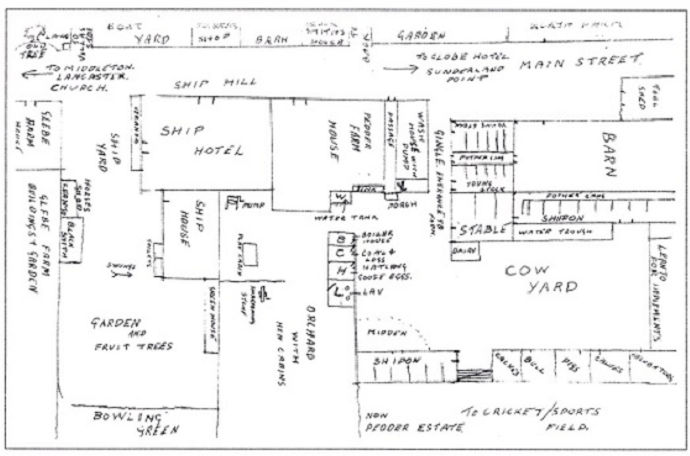 BOAT
YARD
SHOP
BARN
GARDEN
TO MIDDLETON.
LANCASTER.
CHURCH.
SHIP HILL
TO GLOBE HOTEL
SUNDERLAND
POINT
MAIN STREET.
GLEBE
FARM
HOUSE
SHIP
YARD
SHIP
HOTEL
PEDDER
FARM
HOUSE
PASSAGE
WASH
HOUSE WITH
PUMP
BARN
YOUNG
STOCK
FODDER GANG
SHIPON
WATER TROUGH
STABLE
DAIRY
PORCH
WATER TANK
PUMP
SHIP
HOUSE
GLEBE FARM
BUILDINGS & GARDEN
BLACK
SMITH
SWINGS
B
BOILER
HOUSE
C
COAL &
LOGS
H
HATCHING
GOOSE EGGS.
L
LAV
COW
YARD
LEANTO
FOR IMPLEMENTS
GREEN HOUSE
GARDEN
AND
FRUIT TREES
ORCHARD
WITH
HEN CABINS
MIDDEN
SHIPON
CALVES
BULL
PIGS
CALVES
BOWLING
GREEN
NOW
PEDDER ESTATE
TO CRICKET/SPORTS
FIELD.